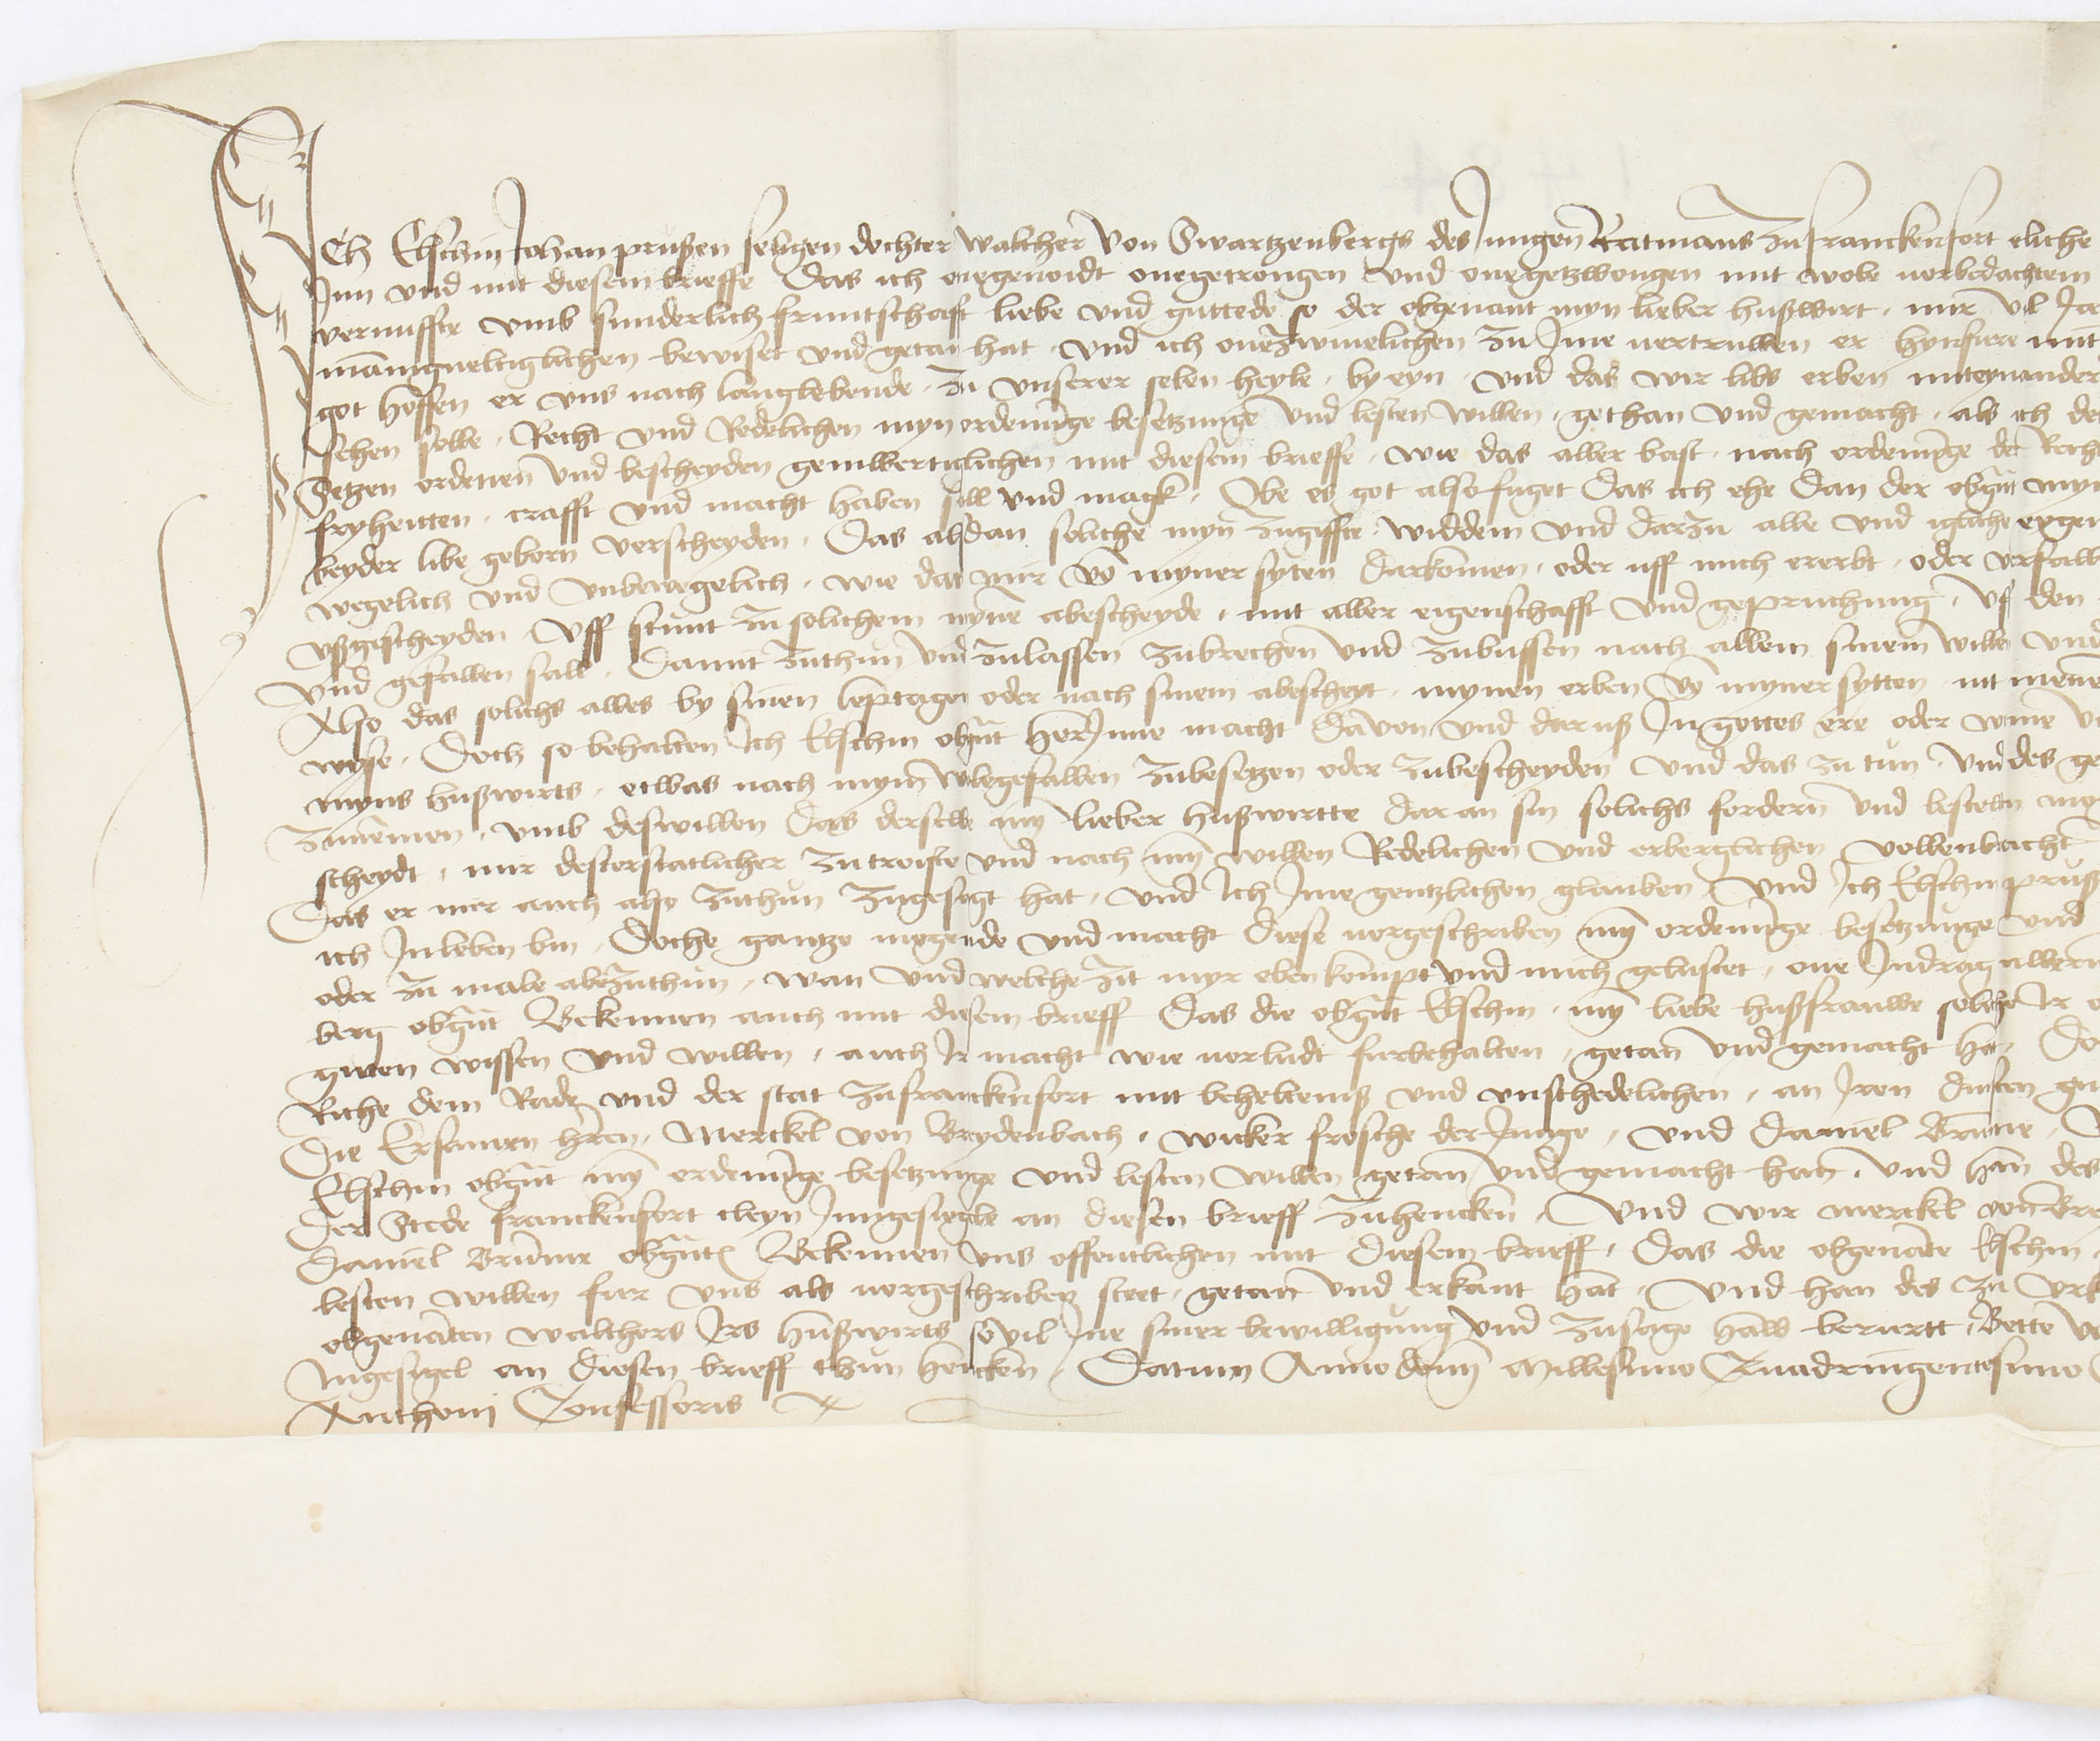 Ich Elschin Johan prußen seligen dochter walther von Swartzenbergs des Jungen Ratmans zu franckenfort eliche
Inn vnd mit diesem brieffe Das ich onegenoidt onegetrongen vnd onegetzwongen mit wole vorbedachtem
vernufft vmb sunderlich fruntschaft liebe vnd guttede so der obgenant myn lieber hußwirt. mir vil Ja
manigueltiglichen bewiset vnd getan hat. vnd ich onezwiuelichen zu Jme vertruwen er hynfure mit
got hoffen er vns nach langlebende. zu vnserer selen heyle. by eyn. vnd das wir libs erben miteynander
sehen solle. Recht vnd Redelichen myn ordenunge besetzunge vnd lesten willen. gethan vnd gemacht. als ich de
Setzen ordenen vnd bescheyden geinwertiglichen mit diesem brieffe. wie das aller bast. nach ordenunge der Recht
fryheitten. crafft vnd macht haben soll vnd magk. Obe es got also fuget Das ich ehe dan der obgnt myn
beyder libe geborn verscheyden. Das alsdan soliche myn zugiffte. widdem vnd darzu alle vnd igliche eygen
wegelich vnd vnbewegelich. wie das mir vo myner syten darkomen. oder uff mich ererbt. oder verfalle
vßgescheyden. Vff stunt zu solichem myne abescheyde. mit aller eigenschafft vnd gepruchung. vf den
vnd gefallen sall. Damit zuthun vnd zulassen zubrechen vnd zubussen nach allem sinem willen vnd
Also das solichs alles by sinen leptagen oder nach sinem abescheyt. mynen erben vo myner sytten. nit mene
wyse. Doch so behalten Ich Elschin obgnt herJnne macht dauon vnd daruß Jn gottes ere oder wine v
myns hußwirts. etwas nach mym wolegefallen zubesetzen oder zubescheyden vnd das zu tun. vnd des ge
zunemen. vmb deswillen das derselb my lieber hußwirtte daran sin solichs fordern vnd lesten my
scheydt. mir desterstatlicher zu troiste vnd nach mym willen Redelichen vnd erberglichen vollenbracht
Das er mir auch also zuthun zugesagt hat. vnd Ich Jme gentzlichen glauben. Vnd Ich Elschin pruß
ich Jnleben bin. Doche gantze mogende vnd macht diese vorgeschriben my ordenunge besetzunge vnd
oder zu male abezuthun. wan vnd welche zit myr eben kompt vnd mich gelustet. one Jndrag aller
berg obgnt Bekennen auch mit diesem brieff Das die obgnt Elschin. my liebe hußfrauwe soliche Ir o
guten wissen vnd willen. auch Ir macht wie vorludt furbehalten. getan vnd gemacht hat. Do
Riche dem Rade vnd der stat zufranckenfort mit beheltenis vnd vnschedelichen. an Jren dinsten gu
Die Ersamen hren. Merckel von Brydenbach. wicker frosche der Junge. vnd Daniel Brune.
Elschin obgnt my ordenunge besetzunge vnd lesten willen getan vnd gemacht han. vnd han des
Der Stede franckenfort cleyn Jnngesiegele an diesen brieff zuhencken. Vnd wir merckel von Bre
Daniel Brunne obgnte Bekennen vns offentlichen mit diesem brieff. Das die obgenate Elschin
lesten willen fur vns als vorgeschriben steet. getan vnd erkant hat. Vnd han des zu vrk
obgenaten walthers Jrs hußwirts so vil Jne siner bewilligung vnd zusage halb berurtt. Bette
Jngesigel an diesen brieff thun hencken. Datum Anno domi Millesimo Quadringentesimo
Anthonij Confessoris